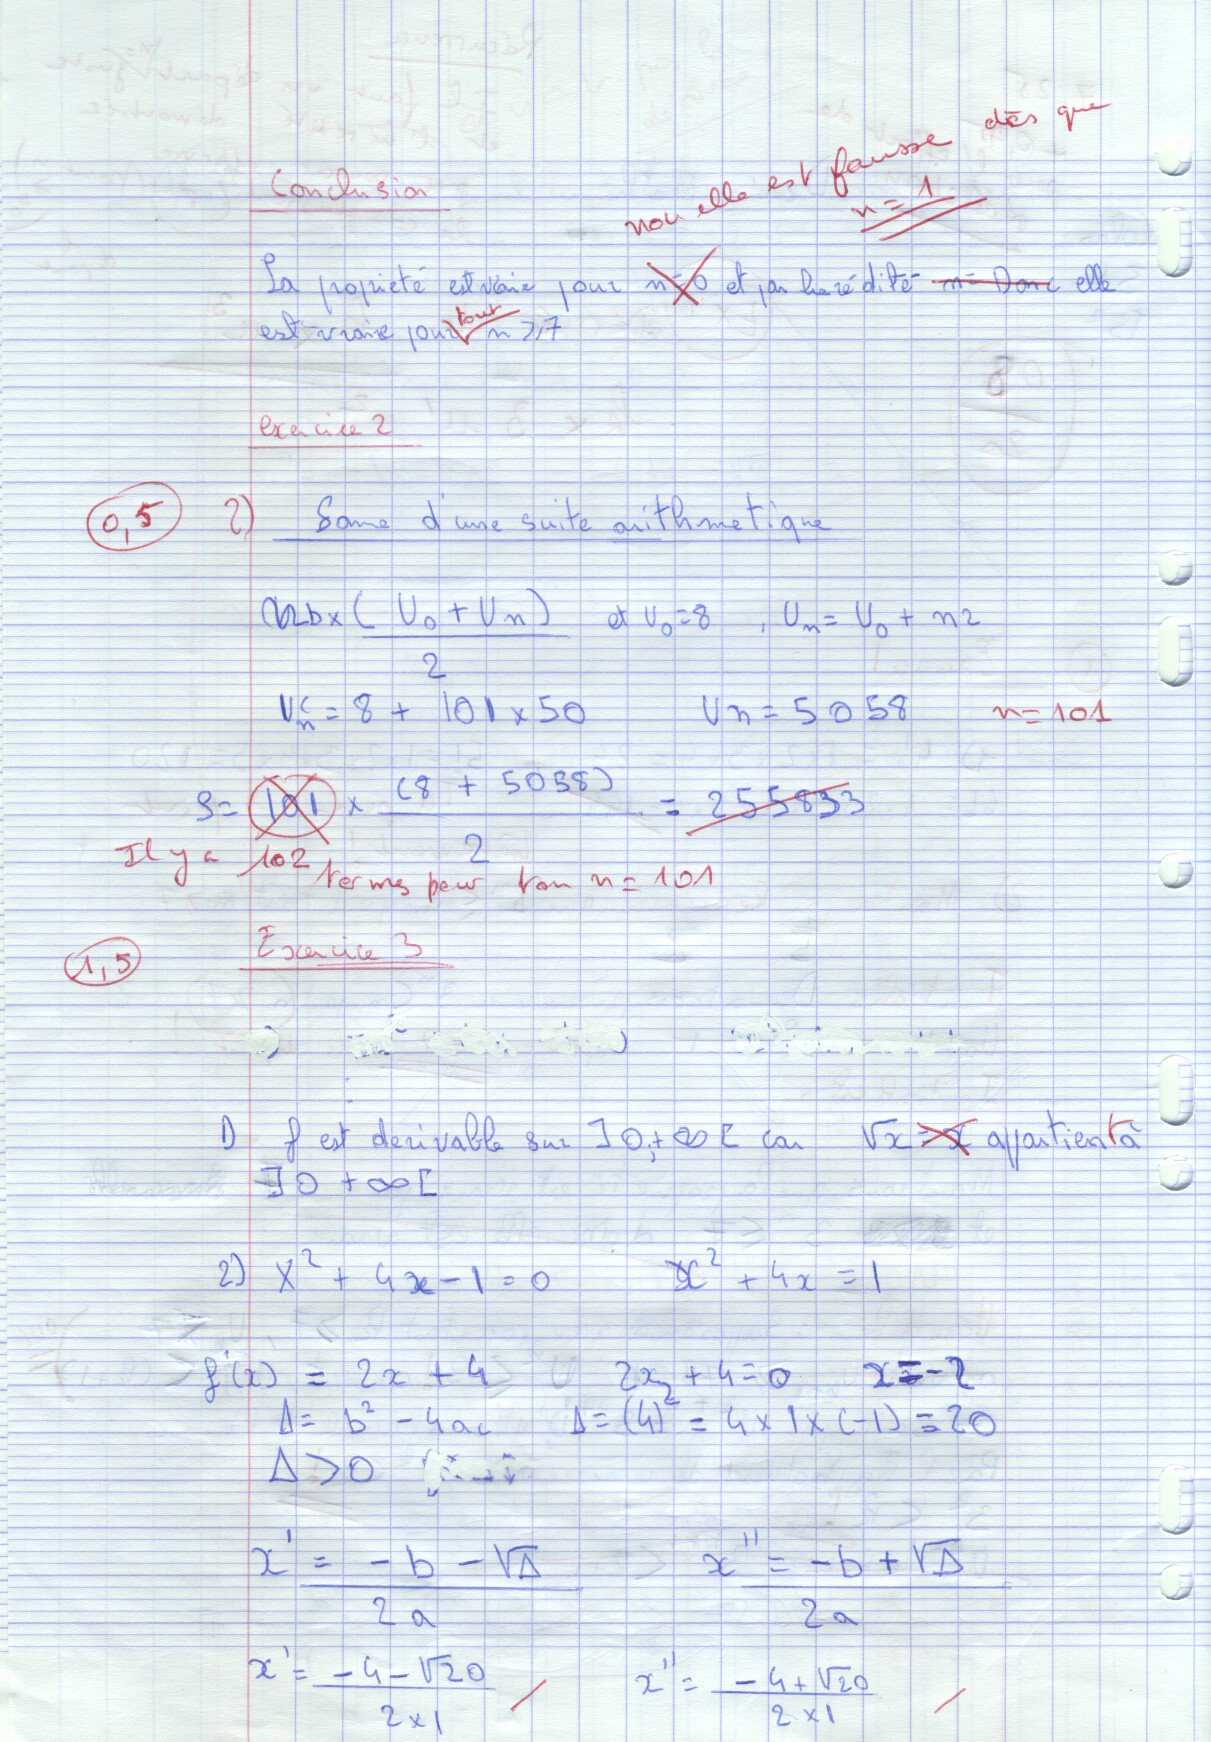 Conclusion
non elle est fausse dès que
n = 1
La propieté est vraie pour n=0 et par herédité n= Donc elle
est vraie pour tout n ≥ 7
exercice 2
0,5 2) Some d'une suite arithmetique
Nb x ( U0 + Un ) et U0 = 8 , Un = U0 + nr
2
Un = 8 + 101 x 50 Un = 5058 n = 101
S = 101 x (8 + 5058) = 255833
2
Il y a 102 termes pour ton n = 101
1,5 Exercice 3
1) f est derivable sur ]0,+∞[ car √x = x appartient à
]0 +∞[
2) X² + 4x - 1 = 0 x² + 4x = 1
f'(x) = 2x + 4 2x + 4 = 0 x = -2
Δ = b² - 4ac Δ = (4)² = 4 x 1 x (-1) = 20
Δ > 0
x' = -b - √Δ x'' = -b + √Δ
2a 2a
x' = -4 - √20 x'' = -4 + √20
2 x 1 2 x 1